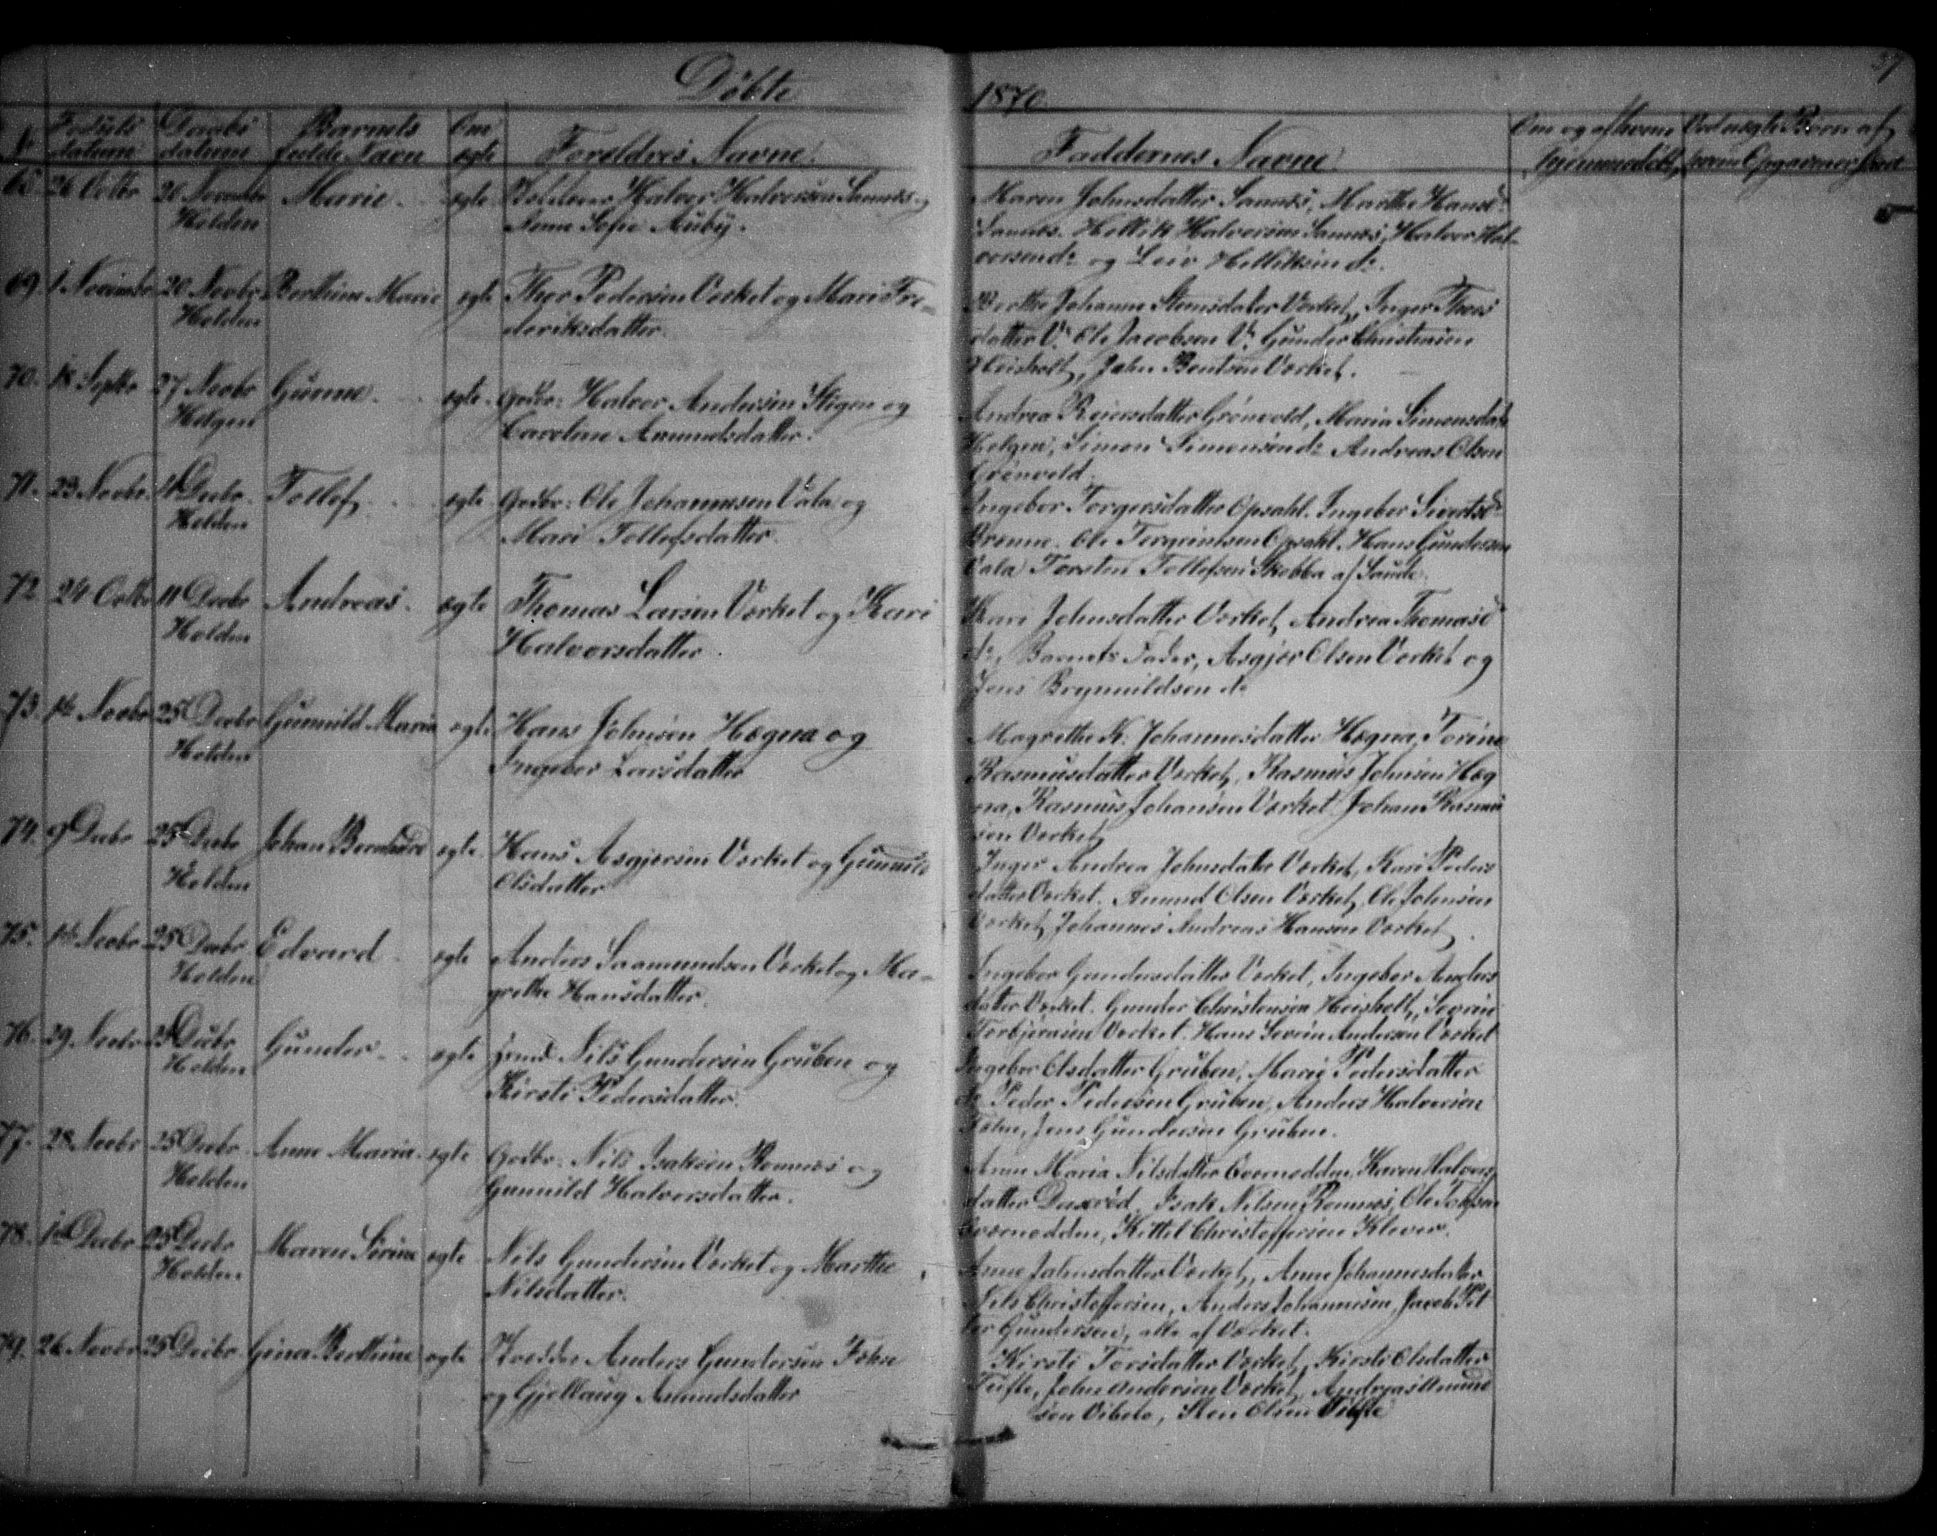 Døbte
1870.
37
N
Fødsels
datum
Daabs
datum
Barnets
fulde Navn
Om
ægte
Foreldres Navne.
Faddernes Navne
Om og af hvem
hjemmedøbt
Ved uegte Børn af
hvem Opgavener skeet
26 Octbr
20 Novembr
Holden
Marie
egte
Halvor Halvorsen Sannes og
Anne Sofie Auby.
Maren Johnsdatter Sannes, Marthe Hansd.
Sannes. Hellik Halvorsen Sannes, Halvor Hal-
vorsen do og Leiv Helliksen do.
69
1 Novembr
20 Novbr
Holden
Berthine Marie
egte
Thor Pedersen Verket og Mari Fre-
deriksdatter.
Berthe Johanne Stensdater Verket, Inger Thors
datter V. Ole Jacobsen V. Gunder Christiansen
Heisholt, John Bentsen Verket.
70.
18 Septbr
27 Novbr
Helgen
Gunne
egte
Gbdbr: Halvor Andersen Stigen og
Caroline Amundsdatter.
Andrea Reiersdatter Grønvold, Maria Simonsdatr
Helgen, Simon Simonsen do Andreas Olsen
Grønvold.
71.
23 Novbr.
11 Decbr.
Holden
Tollef
egte
Gbdbr: Ole Johannesen Vala og
Mari Tollefsdatter.
Ingebor Torgersdatter Opsahl. Ingebor Sivertsd
Brenne. Ole Torgrimsen Opsahl. Hans Gundersen
Vala Torsten Tollefsen Skobba af Saude.
72
24 Octbr
11 Decbr
Holden
Andreas.
egte
Thomas Larsen Verket og Kari
Halvorsdatter.
Kari Johnsdatter Verket, Andrea Thomasd
do, Barnets Fader, Asgjer Olsen Verket og
Jens Brynnildsen do
73.
14 Novbr
25 Decbr
Holden
Gunnild Maria
egte
Hans Johnsen Hegna og
Ingebor Larsdatter
Magrethe K. Johannesdatter Hegna, Torine
Rasmusdatter Verket, Rasmus Johnsen Heg
na, Rasmus Johansen Verket. Johan Rasmu
sen Verket
74.
9 Decbr
25 Decbr
Holden
Johan Bernhard
egte
Hans Asgjersen Verket og Gunnild
Olsdatter
Inger Andrea Johnsdatter Verket, Kari Peders
datter Verket. Amund Olsen Verket, Ole Johnsen
Verket, Johannes Andreas Hansen Verket
75.
14 Novbr
25 Decbr
Holden
Edvard
egte
Anders Saamundsen Verket og Ma-
grethe Hansdatter.
Ingebor Gundersdatter Verket, Ingebor Anders
datter Verket. Gunder Christensen Heisholt, Severin
Torbjørnsen Verket. Hans Severin Andersen Verket
76.
29. Novbr
25 Decbr
Holden
Gunder
egte
Nils Gundersen Gruben og
Kirsti Pedersdatter.
Ingebor Olsdatter Gruben, Marie Pedersdatter
do Peder Pedersen Gruben, Anders Halvorsen
Føhn, Jens Gundersen Gruben.
77.
28. Novbr
25 Decbr
Holden
Anne Maria
egte
Gbdbr. Nils Isaksen Romnes og
Gunnild Halvorsdatter.
Anne Maria Nilsdatter Overnodden, Karen Halvors
datter. Isak Nilsen Romnes, Ole
Overnodden, Kittel Christoffersen Klever.
78.
Decbr
25 Decbr
Holden
Maren Sørine
egte
Nils Gundersen Verket og Marthe
Nilsdatter.
Anne Johnsdatter Verket, Anne Johannesdater
Nils Christoffersen, Anders Johannesen, Jacob Pet
ter Gundersen, alle af Verket.
79.
26 Novbr
25 Decbr
Gina Berthine
egte
Anders Gundersen Føhn
og Gjellaug Amundsdatter
Kirsti Torsdatter Verket, Kirsti Olsdatter
Tufte, John Andersen Verket, Andreas Amund
sen Vibeto, Sten Olsen Tufte